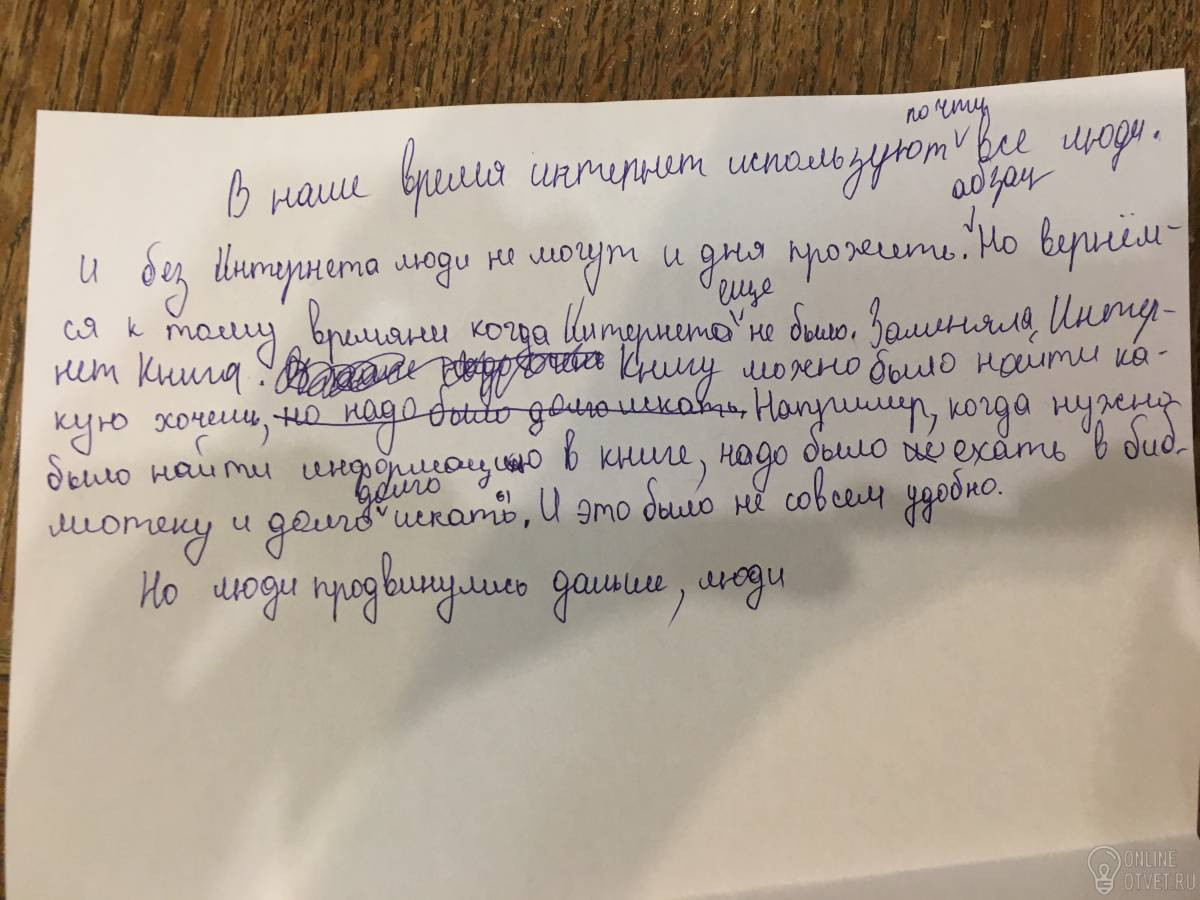 почту
В наше время интернет используют ᵛ все люди.
абзац
И без Интернета люди не могут и дня прожить. Но вернём-
еще
ся к тому времяни когда Интернета ᵛ не было. Заменяла Интер-
нет Книга. Книгу можно было найти ка-
кую хочешь, но надо было долго искать. Например, когда нужно
было найти информацию в книге, надо было ехать в биб-
долго
лиотеку и долго ᵛ искать. И это было не совсем удобно.
Но люди продвинулись дальше, люди
ONLINE
OTVET.RU